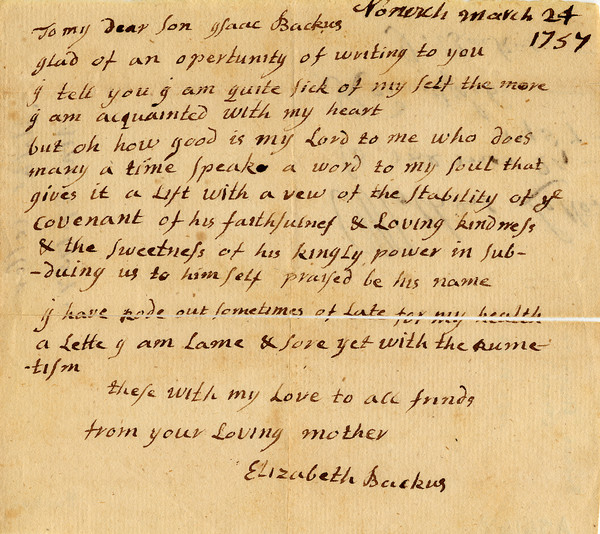 Norwich march 24
1757
To my dear Son ysaac Backus
glad of an opertunity of writing to you
y tell you y am quite sick of my self the more
y am acquainted with my heart
but oh how good is my Lord to me who does
many a time speak a word to my soul that
gives it a Lift with a vew of the stability of ye
covenant of his faithfulnes & Loving kindness
& the sweetness of his kingly power in sub-
-duing us to himself praised be his name
y have rode out sometimes of Late for my health
a Lette y am Lame & sore yet with the rume
-tism
these with my Love to all frinds
from your Loving mother
Elizabeth Backus